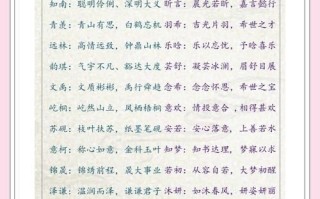 知南：聪明伶俐，深明大义 昕言：晨光若昕，嘉言懿行
青羡：青山有思，白鹤忘机 羽希：吉光片羽，希世之才
远林：高情远致，钟鼎山林 乐晗：乐以忘忧，于晗喜乐
韵琪：气宇不凡，豁达大度 芸舒：凝若冰澜，眉目舒展
文禹：质文彬彬，禹行舜趋 念希：念念怀恩，希世之宝
屹桐：屹然山立，凤栖梧桐 意欢：情投意合，相得甚欢
苏砚：枝叶扶苏，纸墨笔砚 安若：安心落意，上善若水
意柯：称心如意，金柯玉叶 知梦：知书达理，梦寐以求
锦晟：锦绣前程，晟大事业 若初：从容自若，大梦初醒
泽谦：温润而泽，谦谦君子 沐妍：如沐春风，妍姿丽质